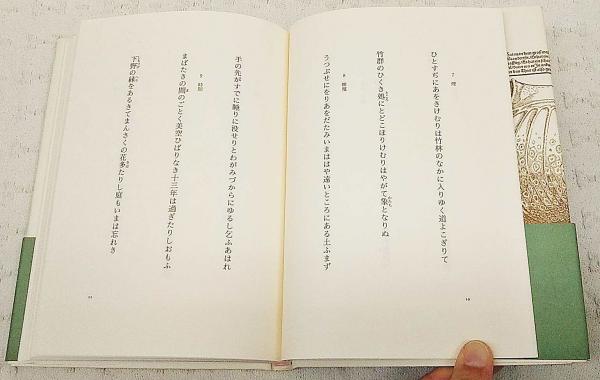 7 煙
ひとすぢにあをきけむりは竹林のなかに入りゆく道よこぎりて
竹群のひくき処にとどこほりけむりはやがて象となりぬ
8 睡魔
うつぶせにをりあをだたみいまははや遠いところにある土ふまず
10
手の先がすでに睡りに没せりとわがみづからにゆるし乞ふあはれ
9 時間
まばたきの間のごとく美空ひばりなき十三年は過ぎたりしおもふ
下野の緑をあるきてまんさくの花多たりし庭もいまは忘れき
11